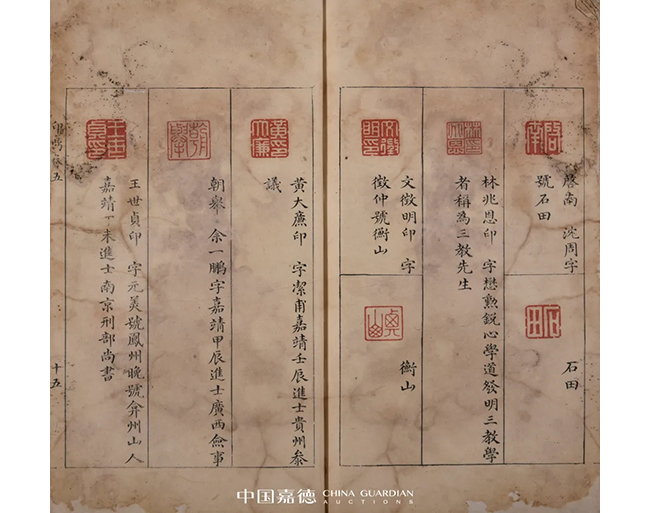 啓南
啓南 沈周字
號石田
石田
石田
林兆恩印
林兆恩印 字懋勳鋭心學道發明三教學
者稱為三教先生
文徵明印
文徵明印 字
徵仲號衡山
衡山
衡山
黃大廉印
黃大廉印 字潔甫嘉靖壬辰進士貴州叅
議
朝舉
朝舉 余一鵬字嘉靖甲辰進士廣西僉事
王世貞印
王世貞印 字元美號鳳州晚號弇州山人
嘉靖丁未進士南京刑部尚書
卷五
十五
中国嘉德 CHINA GUARDIAN
AUCTIONS